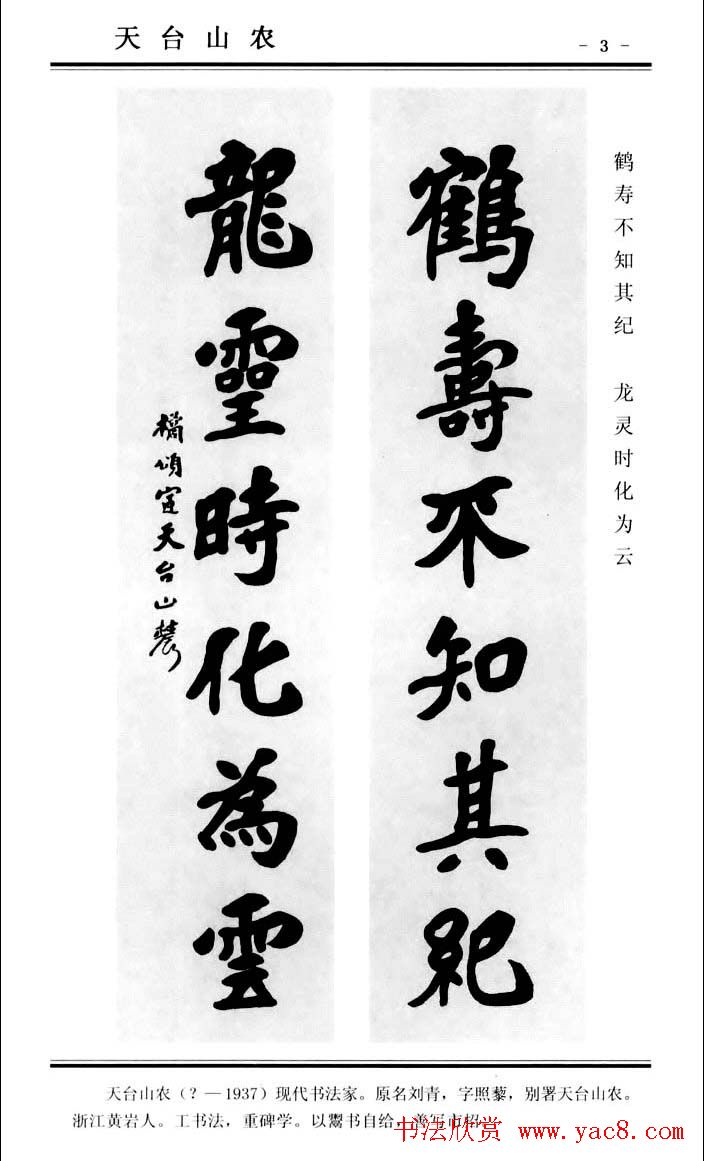 天台山农
- 3 -
鹤寿不知其纪 龙灵时化为云
鶴壽不知其紀
龍靈時化為雲
天台山農
天台山农（？—1937）现代书法家。原名刘青，字照藜，别署天台山农。
浙江黄岩人。工书法，重碑学。以鬻书自给，善写市招。
书法欣赏 www.yac8.com